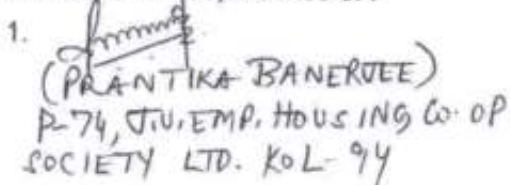 1.
(PRANTIKA BANERJEE)
P-74, J.U. EMP. HOUSING CO-OP
SOCIETY LTD. KOL-94